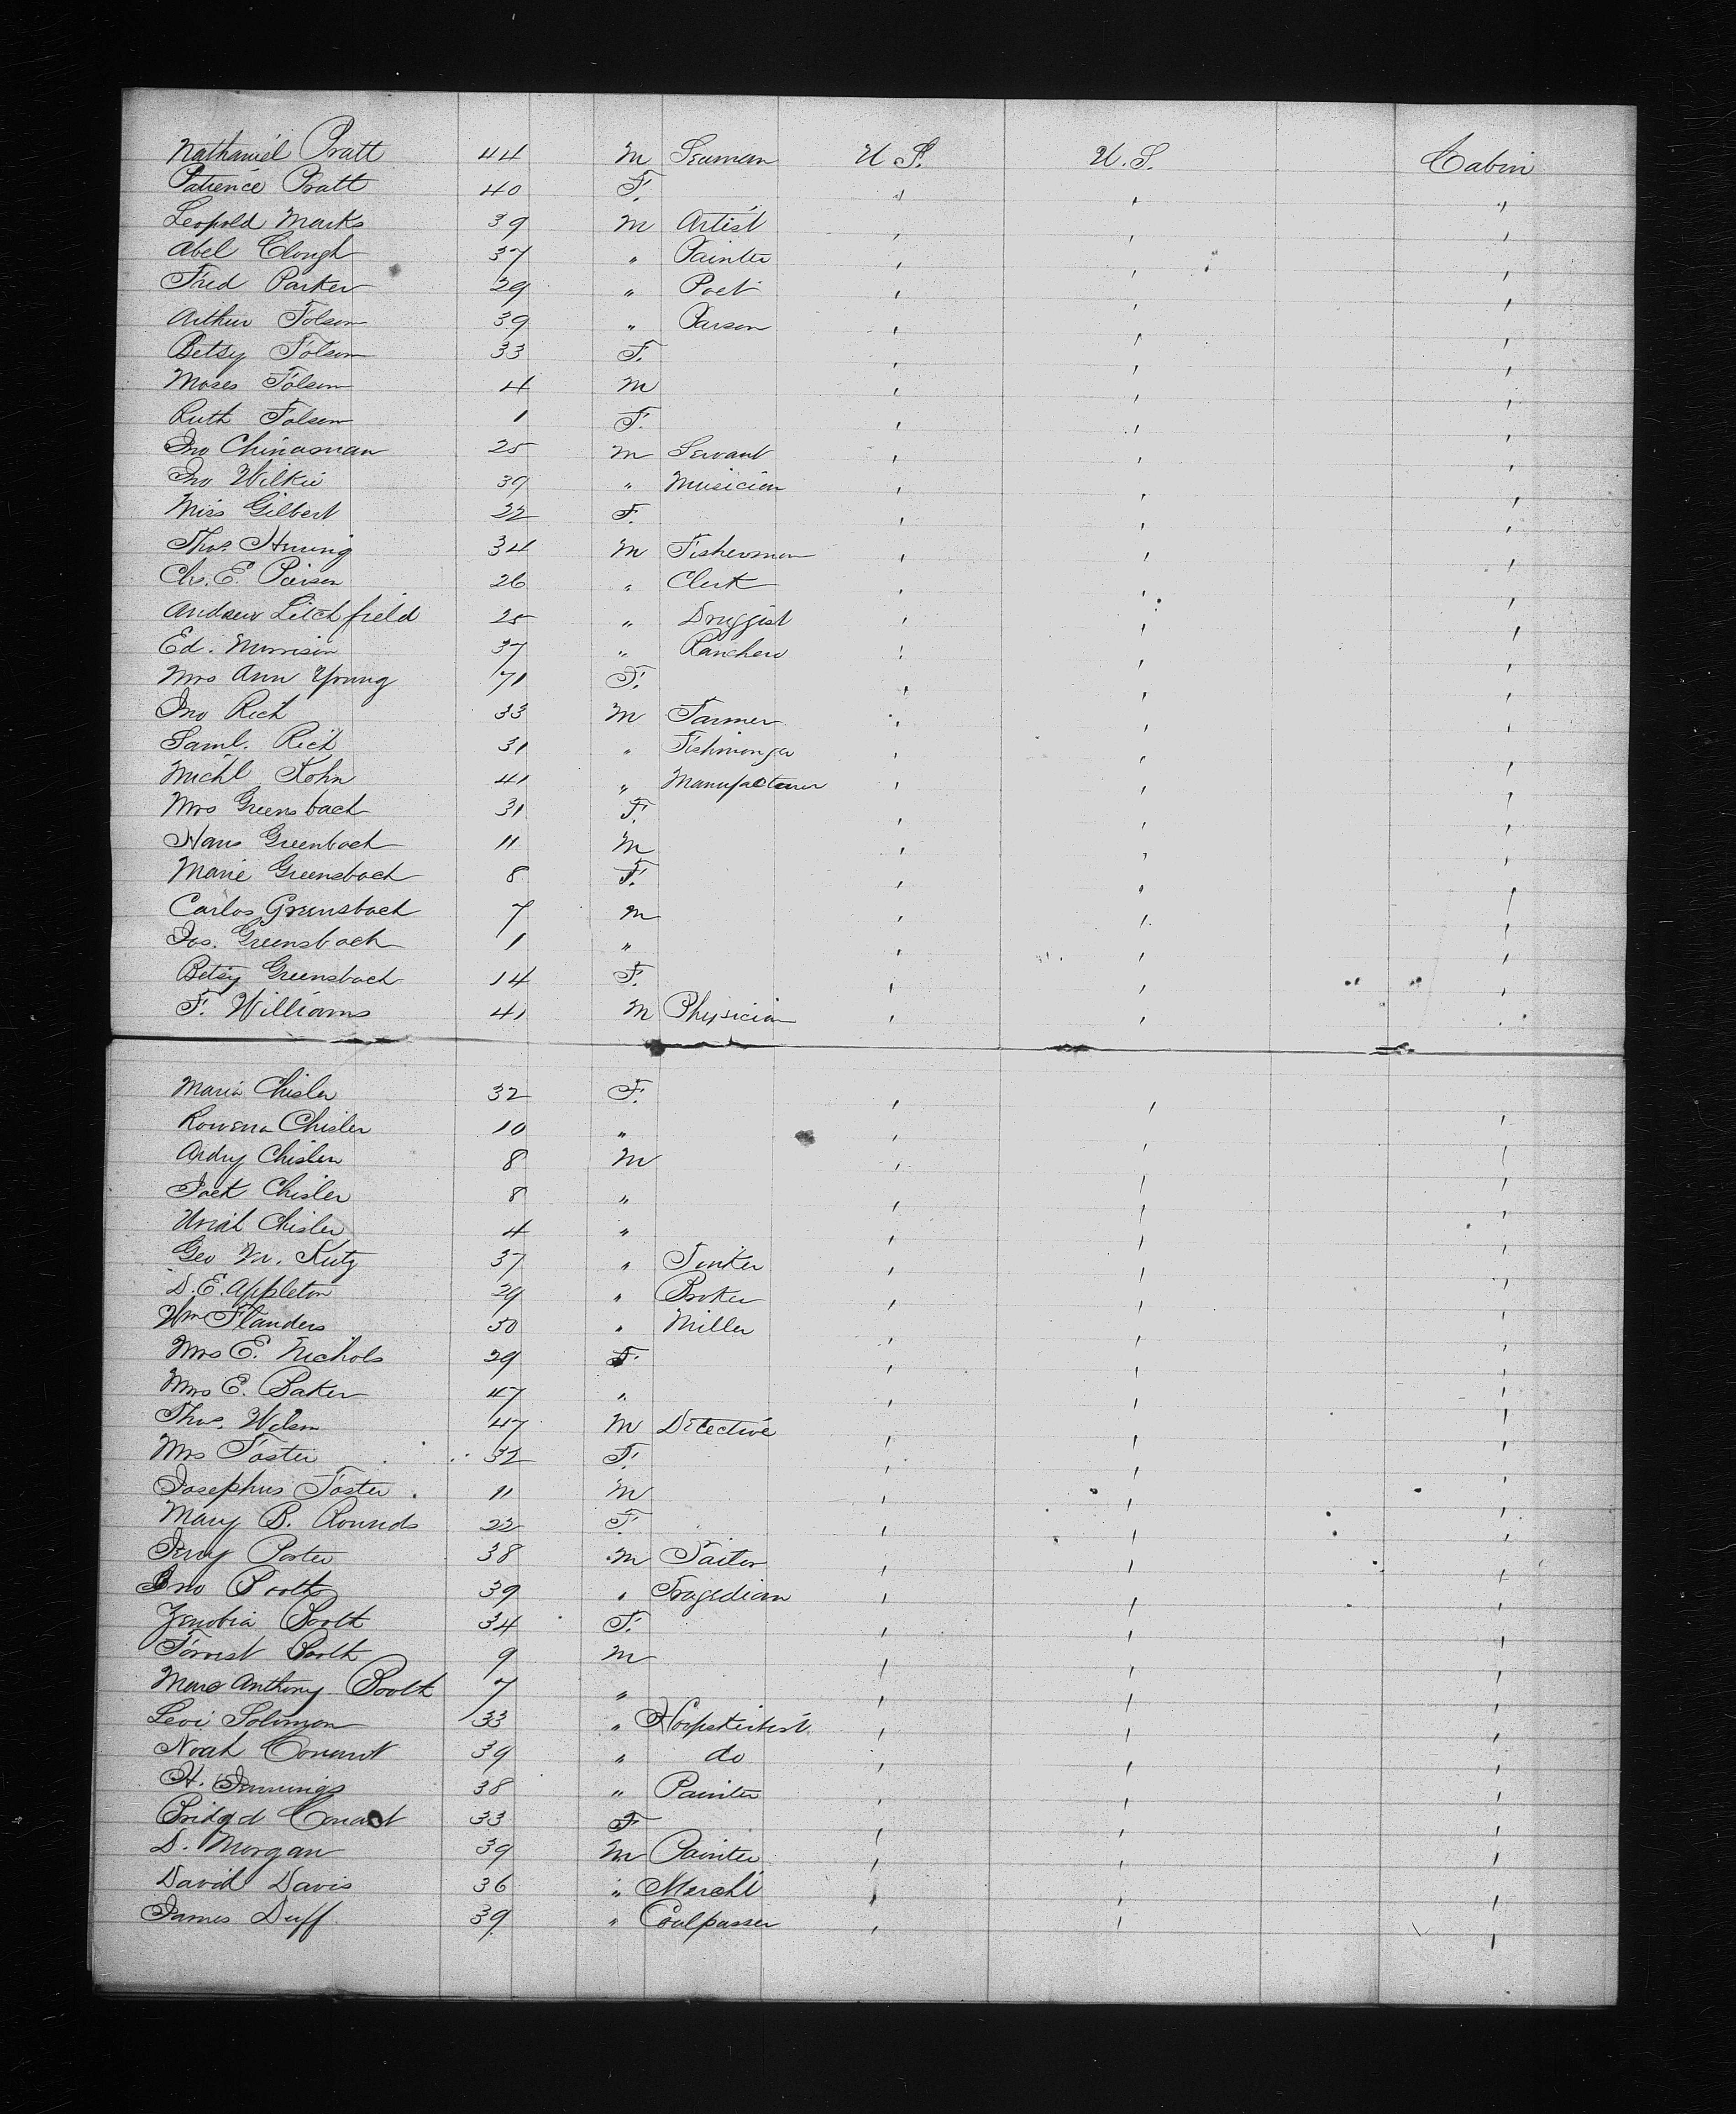 Nathaniel Pratt 44 M Seaman U.S. U.S. Cabin
Patience Pratt 40 F. " " "
Leopold Marks 39 M Artist " " "
Abel Clough 37 " Painter " " "
Fred Parker 29 " Poet " " "
Arthur Folsom 39 " Parson " " "
Betsy Folsom 33 F. " " "
Moses Folsom 4 M " " "
Ruth Folsom 1 F. " " "
Jno Chinaman 25 M Servant " " "
Jno Wilkie 39 " Musician " " "
Miss Gilbert 22 F. " " "
Thos. 34 M Fisherman " " "
Chs. E. 26 " Clerk " " "
Andrew Litchfield 25 " Druggist " " "
Ed. Morrison 37 " Ranchero " " "
Mrs Ann Young 71 F. " " "
Jno Rich 33 M Farmer " " "
Saml. Rich 31 " Fishmonger " " "
Michl Kohn 41 " Manufacturer " " "
Mrs Greensbach 31 F. " " "
Hans Greenbach 11 M " " "
Marie Greensbach 8 F. " " "
Carlos Greensbach 7 M " " "
Jos. Greensbach 1 " " " "
Betsy Greensbach 14 F. " " "
F. Williams 41 M Physician " "
Maria Chisler 32 F. " " "
Rowena Chisler 10 " " " "
Ardry Chisler 8 M " " "
Jack Chisler 8 " " " "
Uriah Chisler 4 " " " "
Geo M. Kutz 37 " Tinker " " "
D. E. Appleton 29 " Broker " " "
Wm Flanders 50 " Miller " " "
Mrs E. Nichols 29 F. " " "
Mrs E. Baker 47 " " " "
Thos. Wilson 47 M Detective " " "
Mrs Foster 32 F. " " "
Josephus Foster 11 M " " "
Mary B. Rounds 22 F. " " "
Jerry Porter 38 M Tailor " " "
Jno Booth 39 " Tragedian " " "
Zenobia Booth 34 F. " " "
Forrest Booth 9 M " " "
Marc Anthony Booth 7 " " " "
Levi Solomon 33 " Hoopskirtist " " "
Noah Conant 39 " do " " "
H. Jennings 38 " Painter " " "
Bridgd Conant 33 F " " "
D. Morgan 39 M Painter " " "
David Davis 36 " Mercht " " "
James Duff 39 " Coalpasser " " "